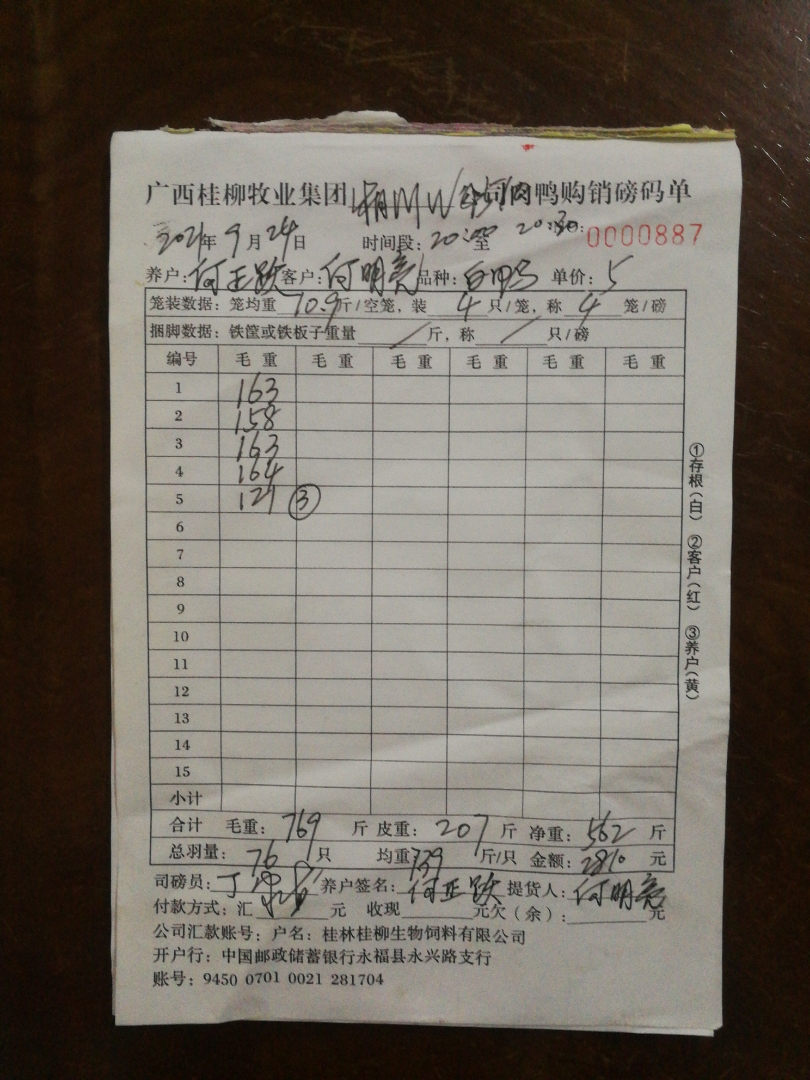 广西桂柳牧业集团 公司肉鸭购销磅码单
2021年9月24日 时间段：20:00至20:30 0000887
养户：何正跃 客户：何明亮 品种： 单价：5
笼装数据：笼均重10.9斤/空笼，装4只/笼，称4笼/磅
捆脚数据：铁筐或铁板子重量/斤，称/只/磅
编号 毛重 毛重 毛重 毛重 毛重 毛重
1 163
2 158
3 163
4 164
5 121 ③
6
7
8
9
10
11
12
13
14
15
小计
合计 毛重：769斤 皮重：207斤 净重：562斤
总羽量：76只 均重7.39斤/只 金额：2810元
司磅员：丁 养户签名：何正跃 提货人：何明亮
付款方式：汇 元 收现 元欠（余）： 元
公司汇款账号：户名：桂林桂柳生物饲料有限公司
开户行：中国邮政储蓄银行永福县永兴路支行
账号：9450 0701 0021 281704
①存根（白） ②客户（红） ③养户（黄）